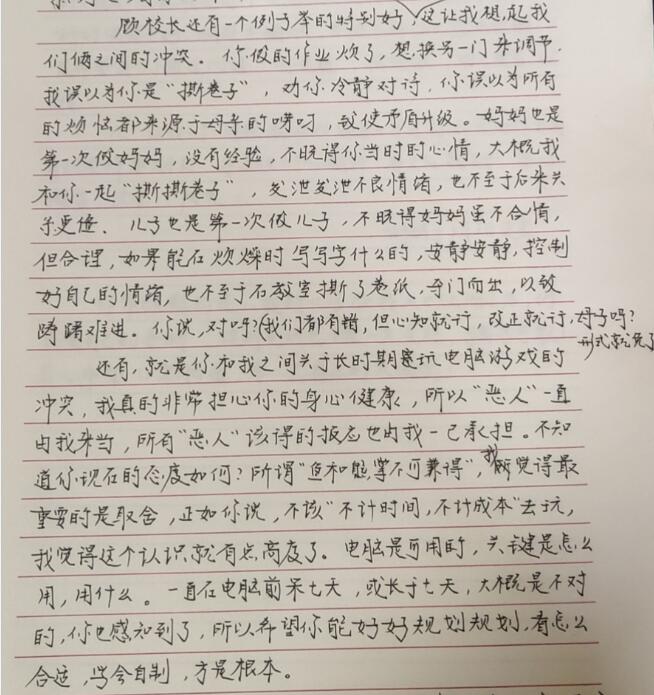 顾校长还有一个例子举的特别好，这让我想起我
们俩之间的冲突。你做的作业烦了，想换另一门来调节，
我误以为你是“撕卷子”，劝你冷静对待，你误以为所有
的烦恼都来源于母亲的唠叨，致使矛盾升级。妈妈也是
第一次做妈妈，没有经验，不晓得你当时的心情，大概我
和你一起“撕撕卷子”，发泄发泄不良情绪，也不至于后来关
系更僵。儿子也是第一次做儿子，不晓得妈妈虽不合情，
但合理，如果能在烦燥时写写字什么的，安静安静，控制
好自己的情绪，也不至于在教室撕了卷纸，夺门而出，以致
踌躇难进。你说，对吗？（我们都有错，但心知就行，改正就行，母子吗？
形式就免了
还有，就是你和我之间关于长时期塞玩电脑游戏的
冲突，我真的非常担心你的身心健康，所以“恶人”一直
由我来当，所有“恶人”该得的报应也由我一己承担。不知
道你现在的态度如何？所谓“鱼和熊掌不可兼得”，我觉得最
重要的是取舍，正如你说，不该“不计时间，不计成本”去玩，
我觉得这个认识就有点高度了。电脑是可用的，关键是怎么
用，用什么。一直在电脑前呆七天，或长于七天，大概是不对
的，你也感知到了，所以希望你能好好规划规划，看怎么
合适，学会自制，方是根本。